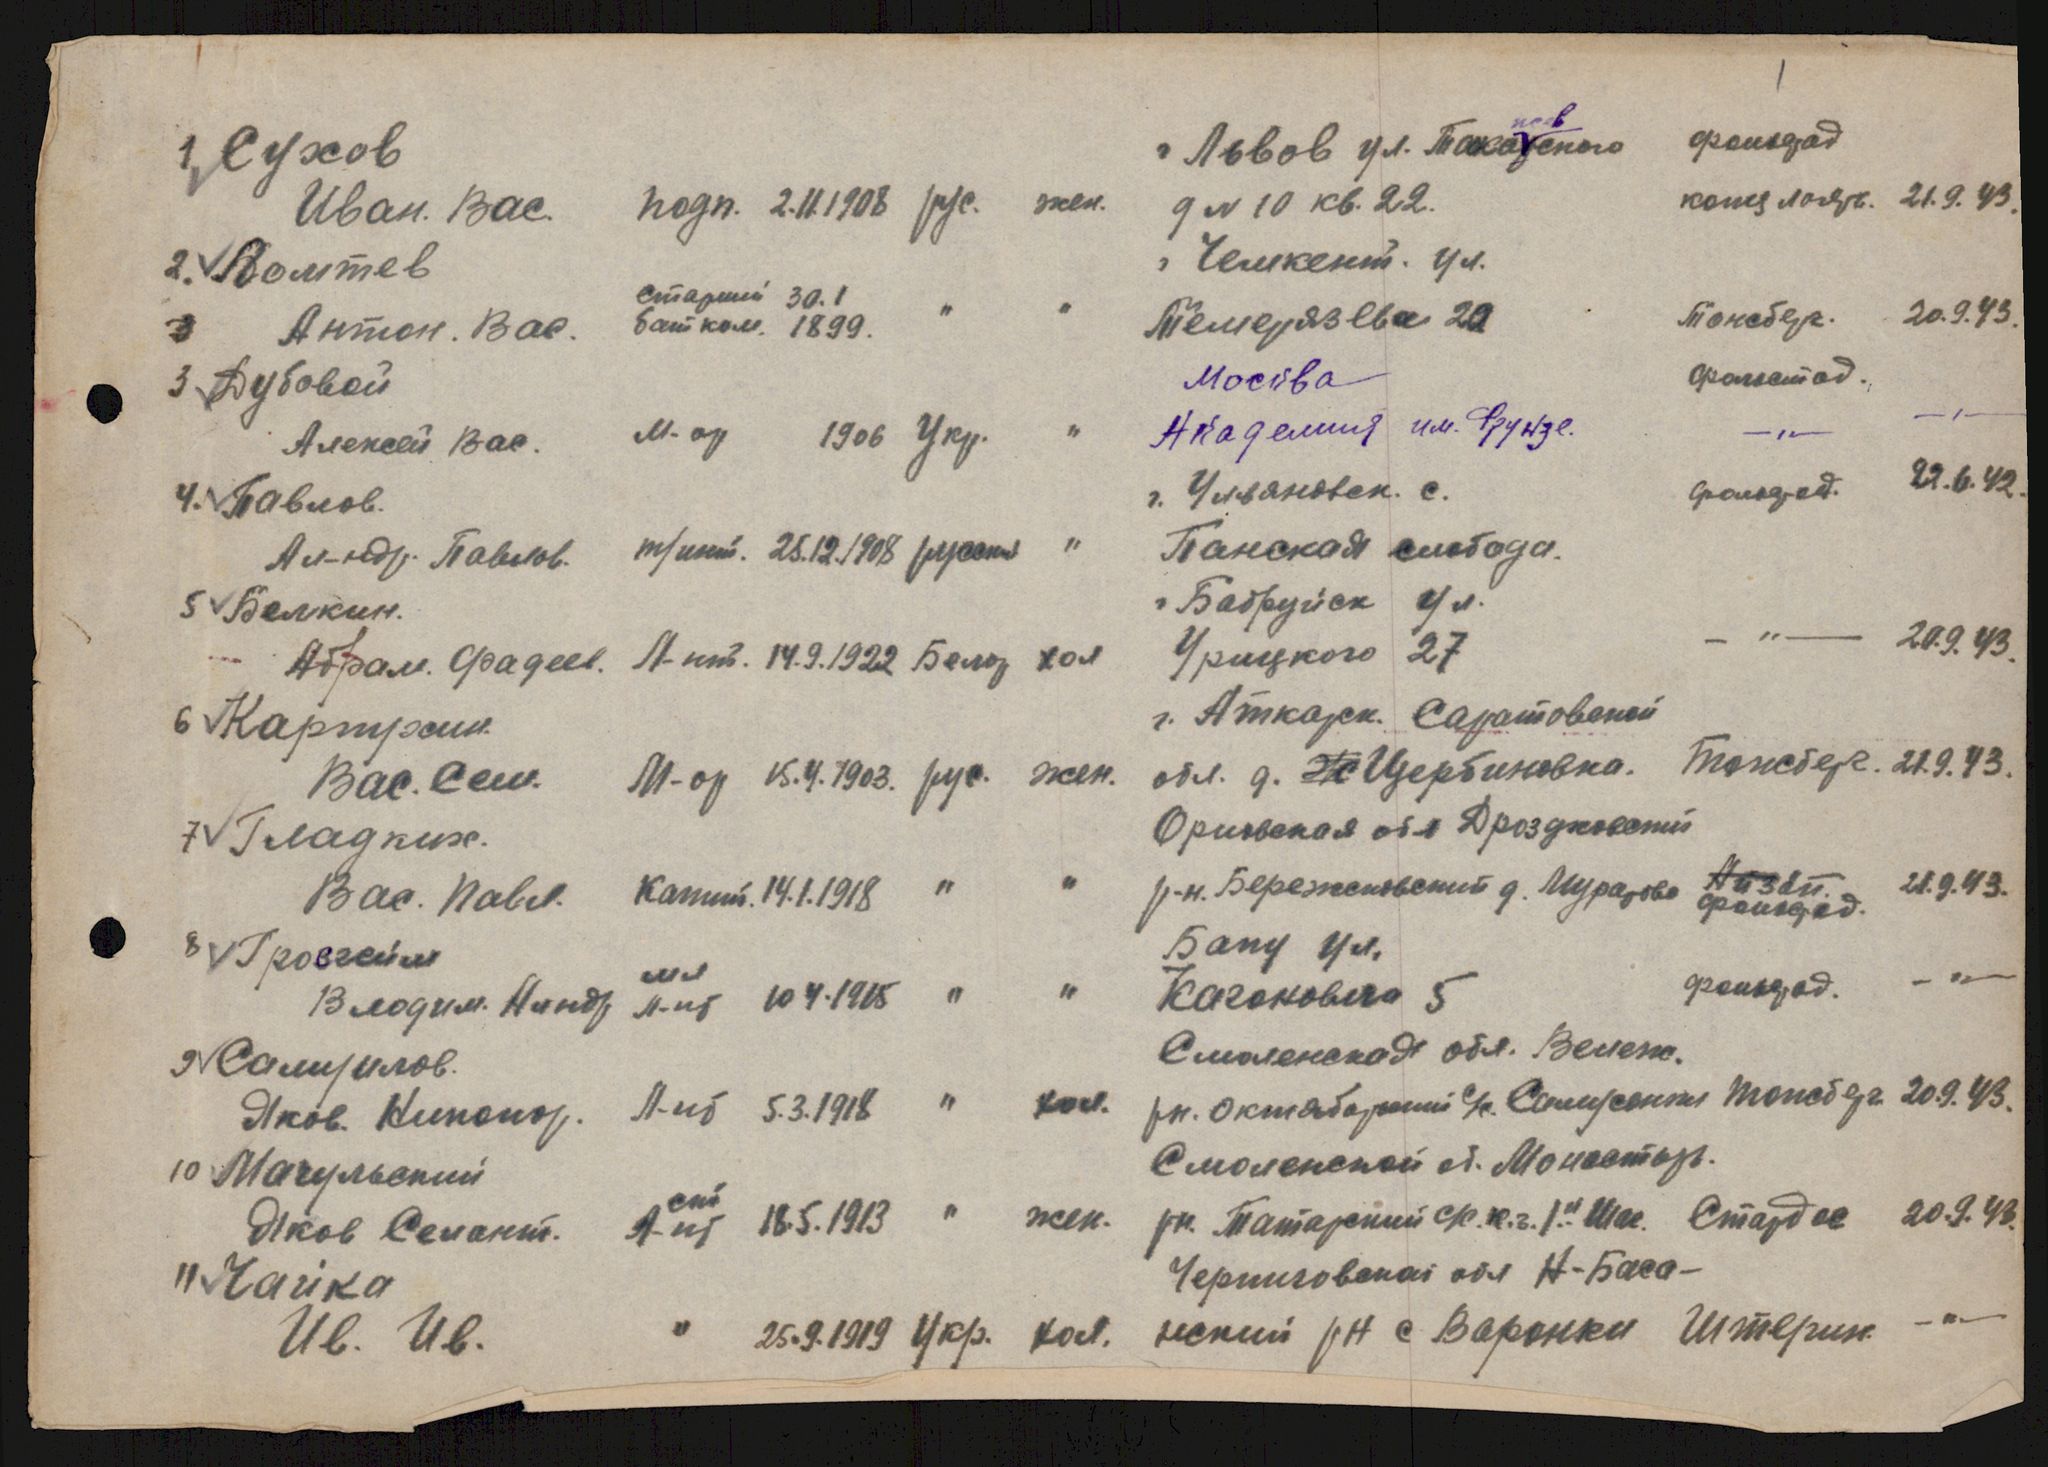 1
1. Сухов г Львов ул. фользрад
Иван. Вас. подп. 2.11.1908 рус. жен. д N 10 кв. 22. конц лагрь. 21.9.43.
2. г Чемкент. ул.
Антон. Вас. старший баткам. 30.1 1899. " " Темерязева 20 Тонсберг. 20.9.43.
3 Дубовой Москва фольстад.
Алексей Вас. М-ор 1906 Укр. " Академия им. Фрунзе. —"— —"—
4. Павлов. г. Ульяновск. с. фользрад. 22.6.42.
Ал-ндр. Павлов. т/инт. 25.12.1908 русский " Панская слобода.
5 Белкин. г Бабруйск ул.
Абрам. Фадеев. Л-нт. 14.9.1922 Белор хол Урицкого 27 — " — 20.9.43.
6 г. Аткарск. Саратовской
Вас. Сем. М-ор 15.4.1903. рус. жен. обл. д. Щербиновка. Тонсберг. 21.9.43.
7 Гладких. Орловская обл Дроздковский
Вас. Павл. Капит. 14.1.1918 " " р-н. д. Муратово фользрад. 21.9.43.
8 Гросгейм Баку ул.
Владим. Алндр мл Л-нт 10 4.1915 " " Кагановича 5 фользрад. —"—
9 Смоленская обл. Вележ.
Яков. Никонор. Л-нт 5.3.1918 " хол. рн. Октябарский с/с. Тонсберг 20.9.43.
10 Мачульский Смоленской об. Монастыр.
Яков Селант. ст Л-нт 18.5.1913 " жен. рн. Татарский с/с. 20.9.43.
11 Чайка Черниговская обл Н-Баса-
Ив. Ив. " 25.9.1919 Укр. хол. нский рн с Варонки Штерин. —"—